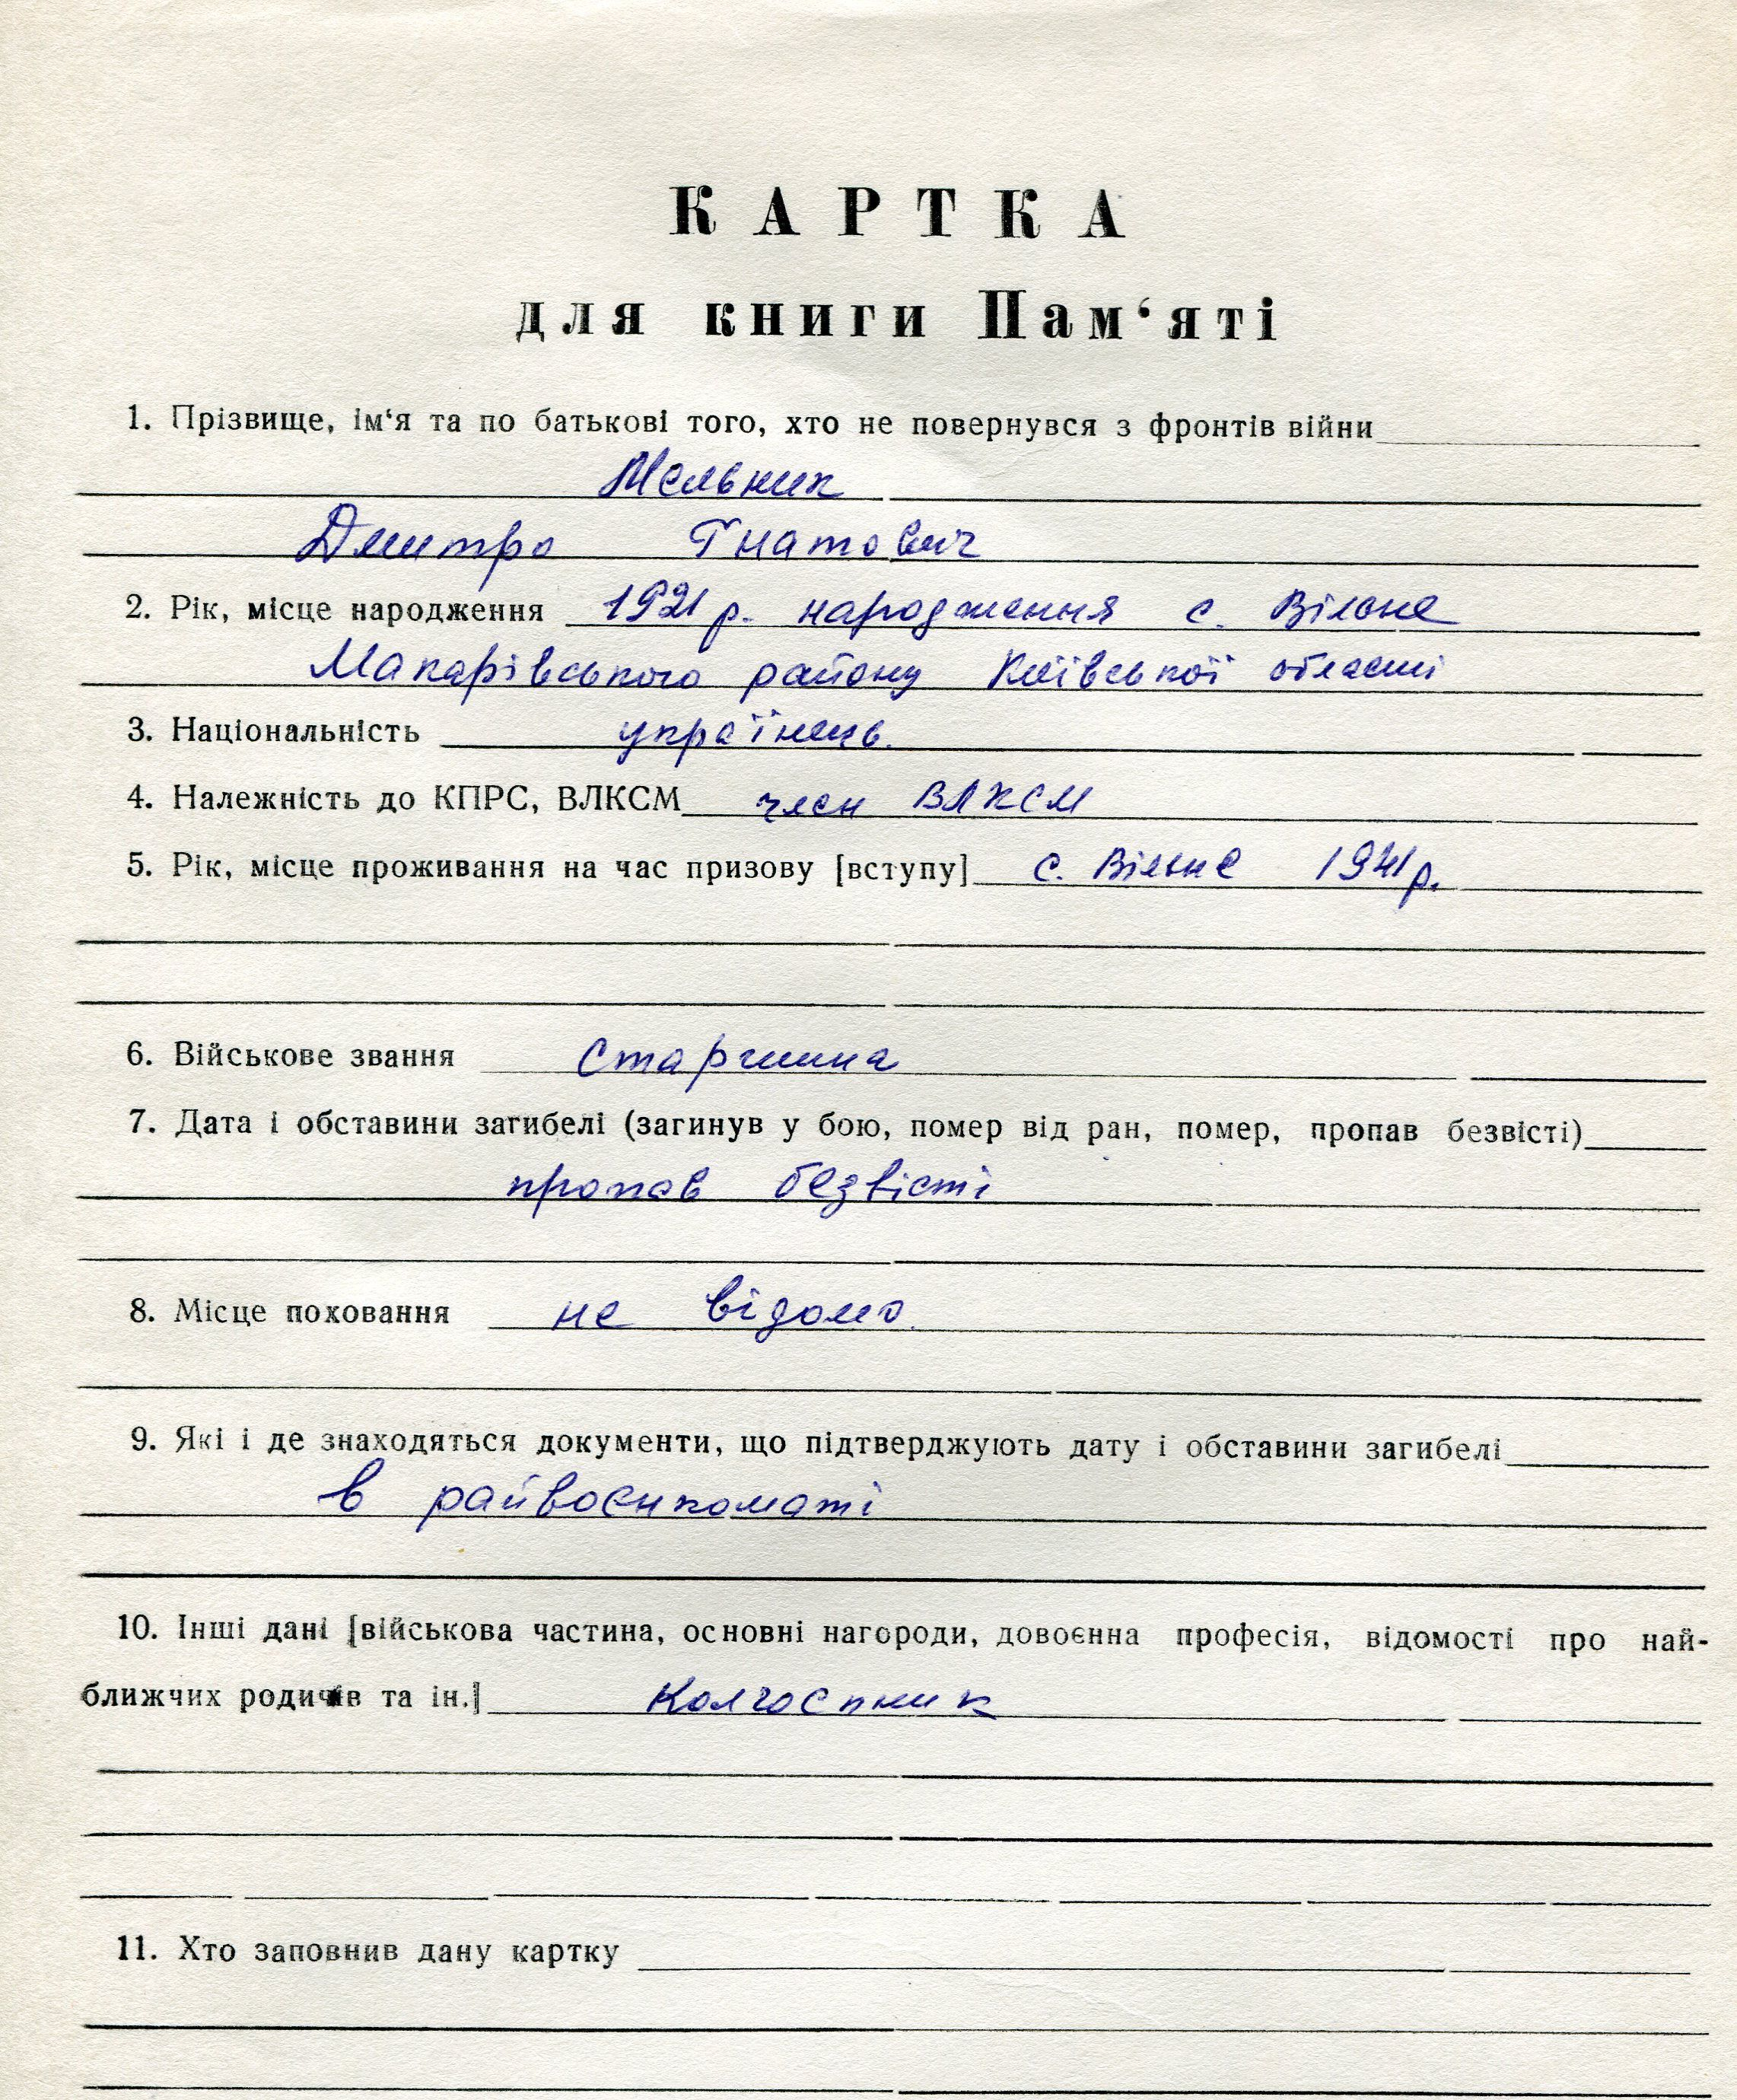 КАРТКА
для книги Пам‘яті
1. Прізвище, ім‘я та по батькові того, хто не повернувся з фронтів війни
Мельник
Дмитро Гнатович
2. Рік, місце народження 1921 р. народження с. Вільне
Макарівського району Київської області
3. Національність українець.
4. Належність до КПРС, ВЛКСМ член ВЛКСМ
5. Рік, місце проживання на час призову [вступу] с. Вільне 1941 р.
6. Військове звання Старшина
7. Дата і обставини загибелі (загинув у бою, помер від ран, помер, пропав безвісті)
пропав безвісті
8. Місце поховання не відомо.
9. Які і де знаходяться документи, що підтверджують дату і обставини загибелі
в райвоєнкоматі
10. Інші дані [військова частина, основні нагороди, довоєнна професія, відомості про най-
ближчих родичів та ін.] Колгоспник
11. Хто заповнив дану картку